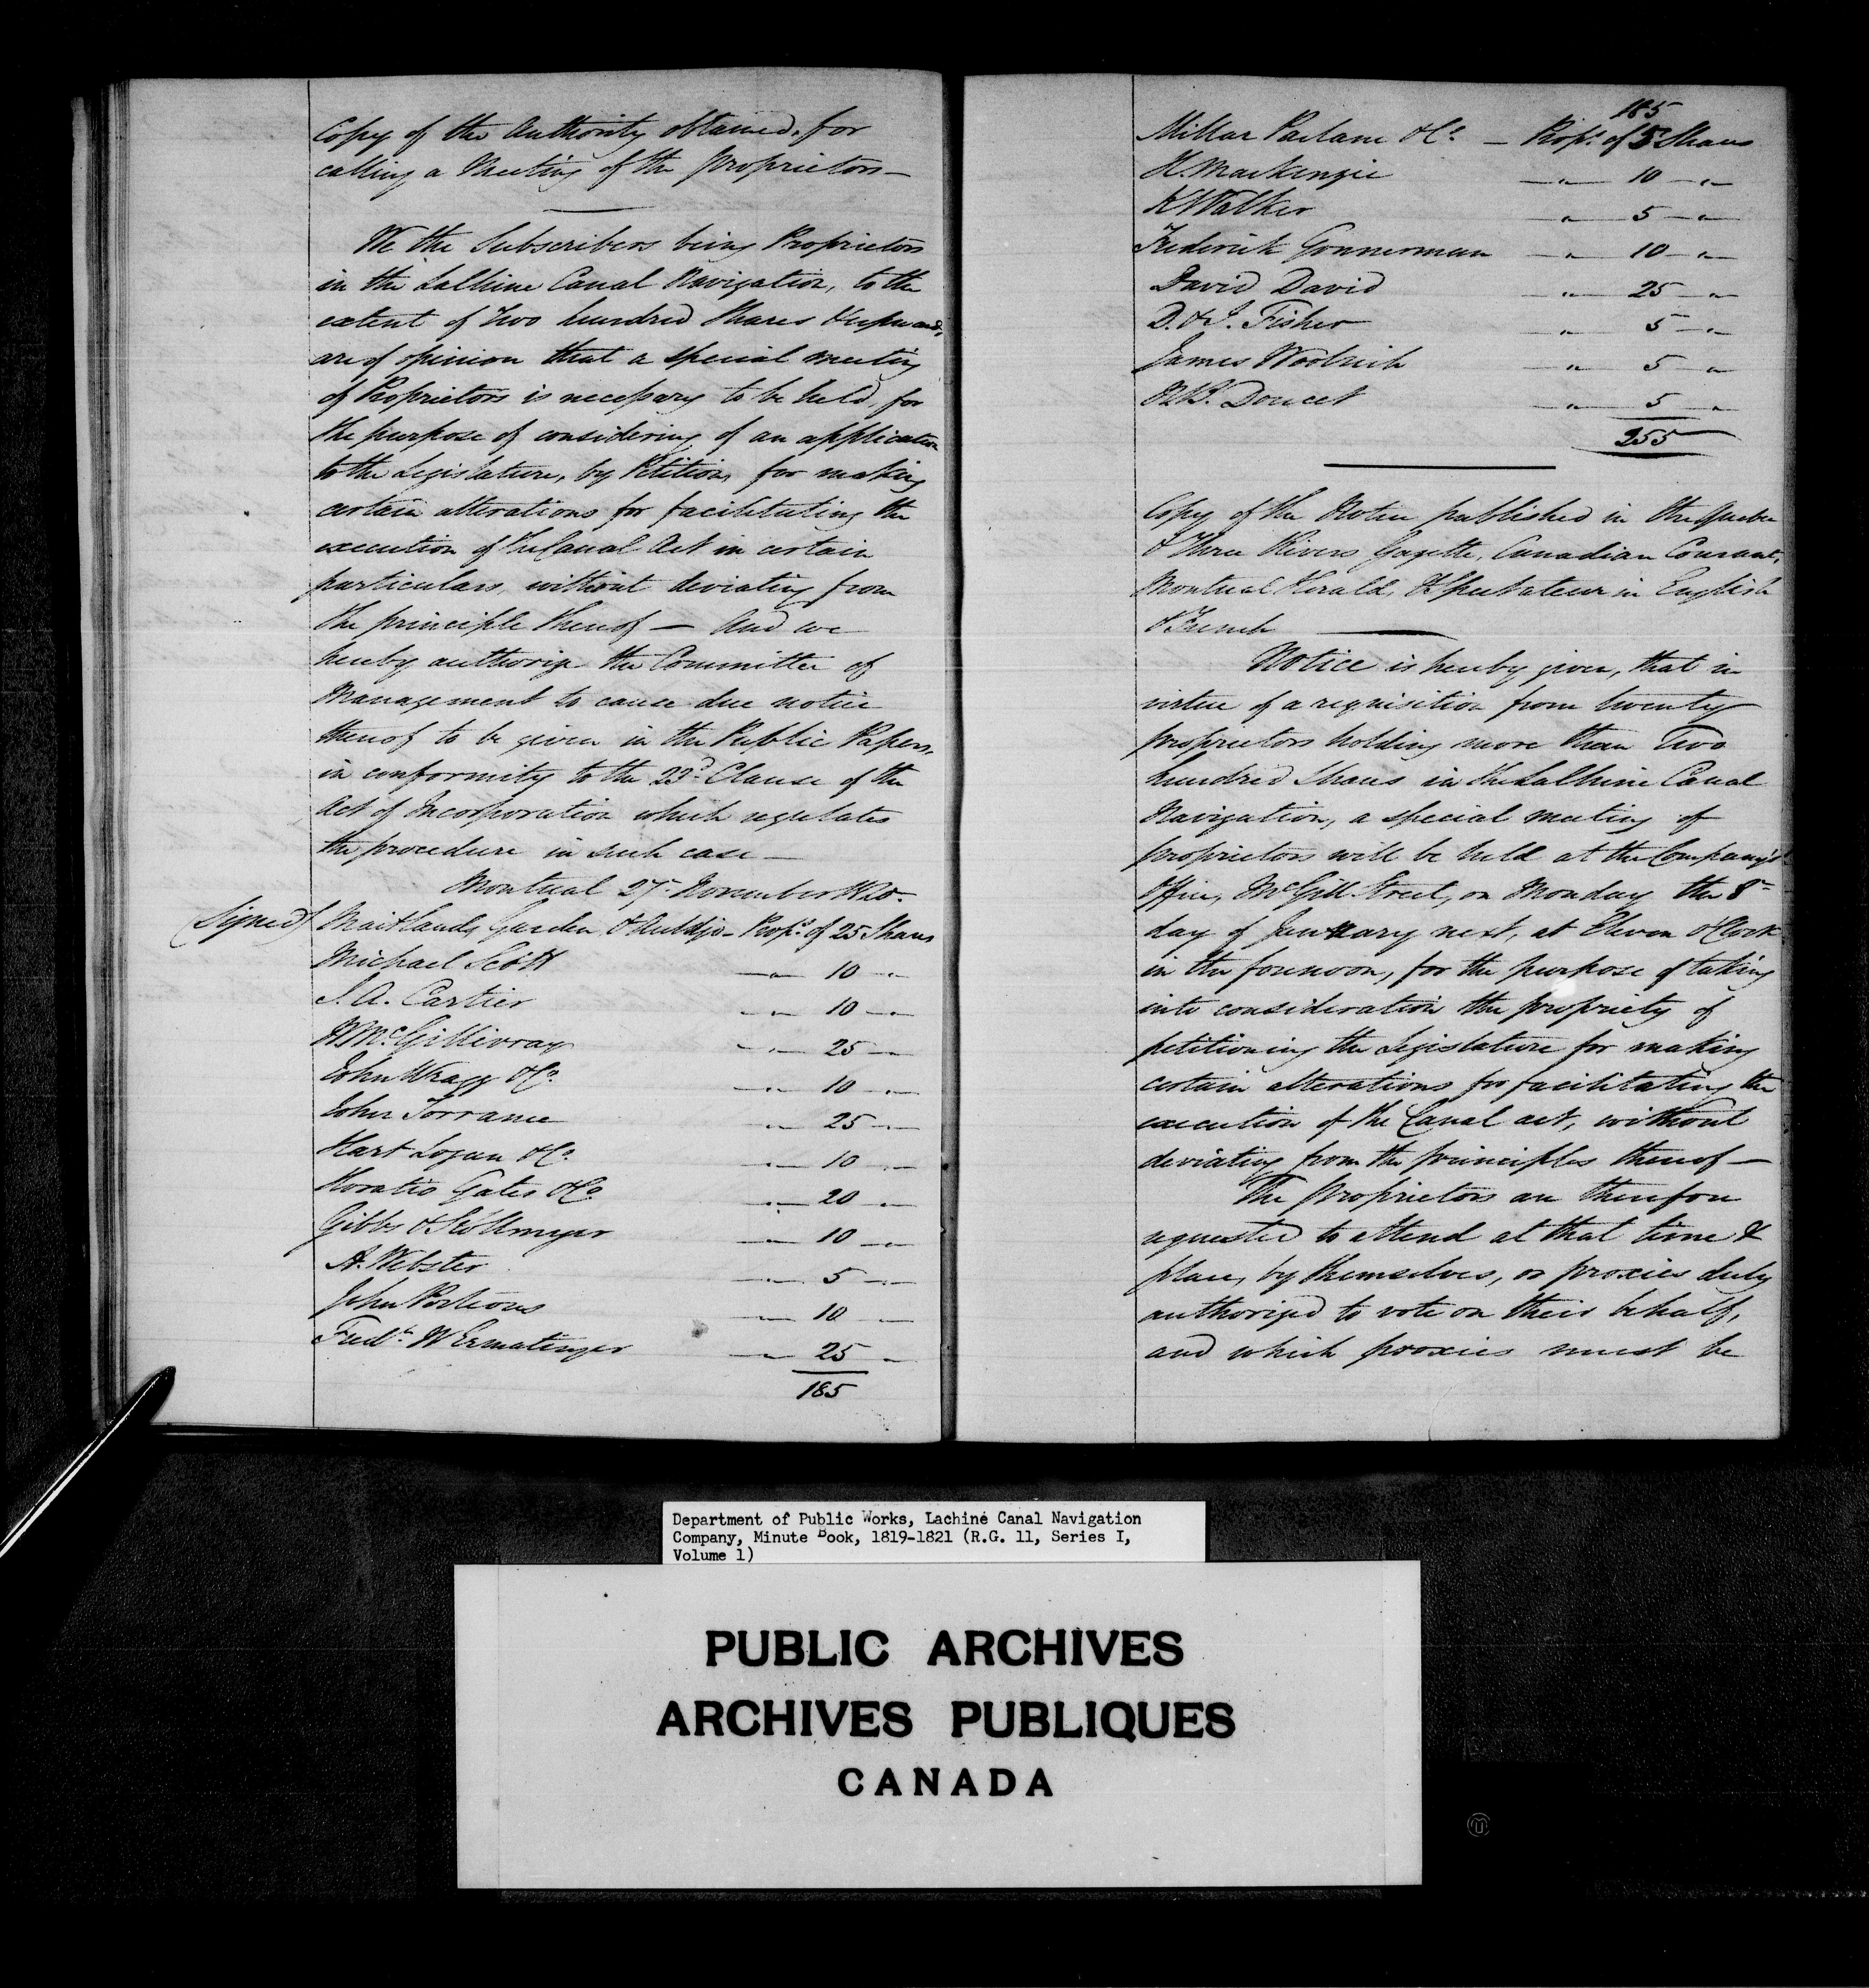 Copy of the Authority obtained, for
calling a Meeting of the proprietors —
We the Subscribers being Proprietors
in the LaChine Canal Navigation, to the
extent of Two hundred Shares & upwards,
are of opinion that a special meeting
of Proprietors is necessary to be held, for
the purpose of considering of an application
to the Legislature, by Petition, for making
certain alterations for facilitating the
execution of the Canal Act in certain
particulars, without deviating from
the principle thereof — And we
hereby authorize the Committee of
Management to cause due notice
thereof to be given in the Public Papers,
in conformity to the 23d. Clause of the
Act of Incorporation which regulates
the procedure in such case —
Montreal 27th November 1820.
(Signed) Maitlands Garden & Auldjo - Propr. of 25 Shares
Michael Scott — " — 10 — "
J. A. Cartier — " — 10 — "
W McGillivray — " — 25 — "
John Wragg & Co. — " — 10 — "
John Torrance — " — 25 — "
Hart Logan & Co. — " — 10 — "
Horatio Gates & Co — " — 20 — "
Gibbs & Kollmyer — " — 10 — "
A. Webster — " — 5 — "
John Porteous — " — 10 — "
Fredk. W Ermatinger — " — 25 — "
185
185
Millar Parlane & Co. — Propr. of 5 Shares
H. Mackenzie — " — 10 — "
Walker — " — 5 — "
Frederick Gonnerman — " — 10 — "
David David — " — 25 — "
D. & J. Fisher — " — 5 — "
James Woolrich — " — 5 — "
N.B. Doucet — " — 5 — "
255
Copy of the Notice published in the Quebec
& Three Rivers Gazette, Canadian Courant,
Montreal Herald, & Spectateur in English
& French —
Notice is hereby given, that in
virtue of a requisition from twenty
proprietors holding more than Two
hundred Shares in the LaChine Canal
Navigation, a special meeting of
proprietors will be held at the Company's
Office, McGill Street, on Monday the 8th
day of January next, at Eleven o'Clock
in the forenoon, for the purpose of taking
into consideration the propriety of
petitioning the Legislature for making
certain alterations for facilitating the
execution of the Canal act, without
deviating from the principles thereof —
The proprietors are therefore
requested to attend at that time &
place, by themselves, or proxies duly
authorized to vote on their behalf,
and which proxies must be
Department of Public Works, Lachine Canal Navigation
Company, Minute Book, 1819-1821 (R.G. 11, Series I,
Volume 1)
PUBLIC ARCHIVES
ARCHIVES PUBLIQUES
CANADA